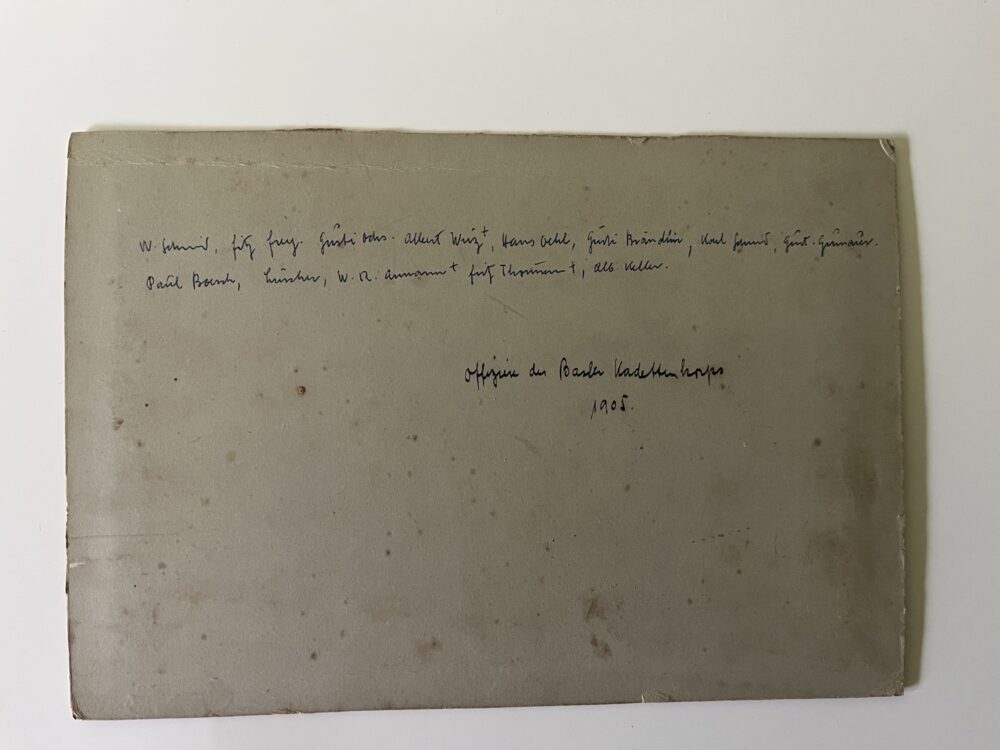 W. Schmid, Fritz Frey. Gusti Ochs. Albert Wirz†, Hans Oehl, Gusti Brändlin, Karl Schmid, Gust. Grunauer.
Paul Boesch, Lüscher, W. R. Ammann† Fritz Thommen†, Alb. Keller.
Offiziere des Basler Kadettenkorps
1905.